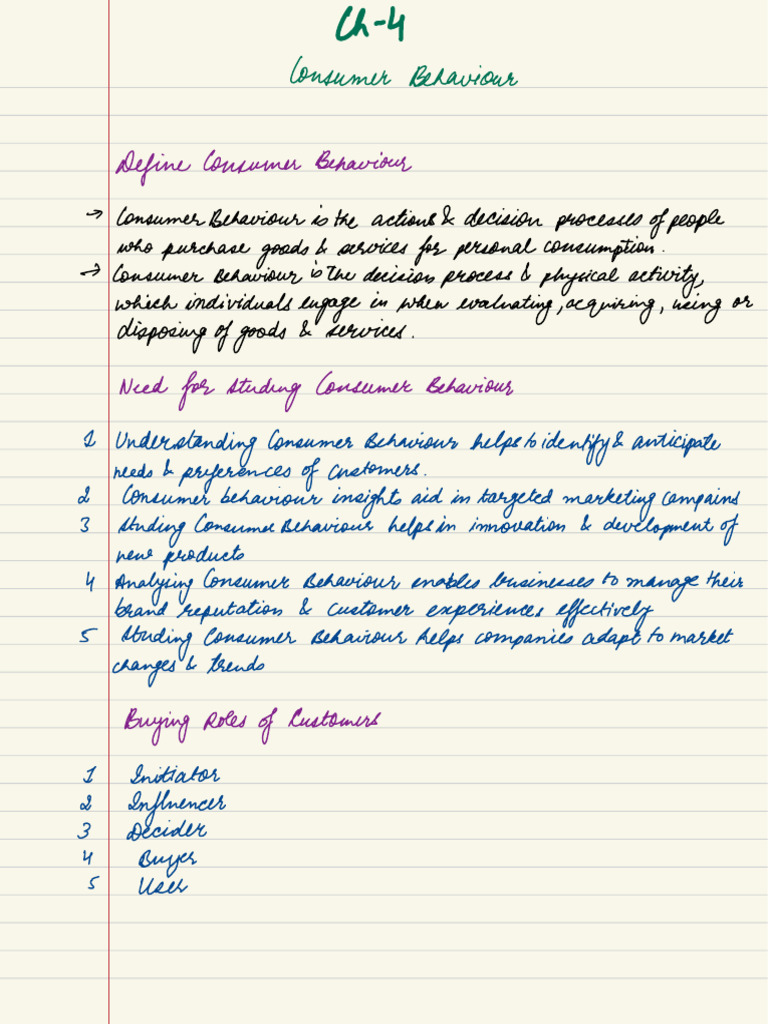 Ch-4
Consumer Behaviour
Define Consumer Behaviour
→ Consumer Behaviour is the actions & decision processes of people
who purchase goods & services for personal consumption.
→ Consumer Behaviour is the decision process & physical activity,
which individuals engage in when evaluating, acquiring, using or
disposing of goods & services.
Need for Studing Consumer Behaviour
1 Understanding Consumer Behaviour helps to identify & anticipate
needs & preferences of customers.
2 Consumer behaviour insights aid in targeted marketing campains
3 Studing Consumer Behaviour helps in innovation & development of
new products
4 Analysing Consumer Behaviour enables businesses to manage their
brand reputation & customer experiences effectively
5 Studing Consumer Behaviour helps companies adapt to market
changes & trends
Buying Roles of Customers
1 Initiator
2 Influencer
3 Decider
4 Buyer
5 User